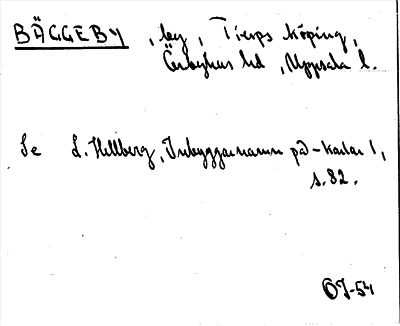 BÄGGEBY, by, Tierps köping,
Örbyhus hd, Uppsala l.
Se L. Hellberg, Inbyggarnamn på -karlar 1,
s. 82.
OJ-54